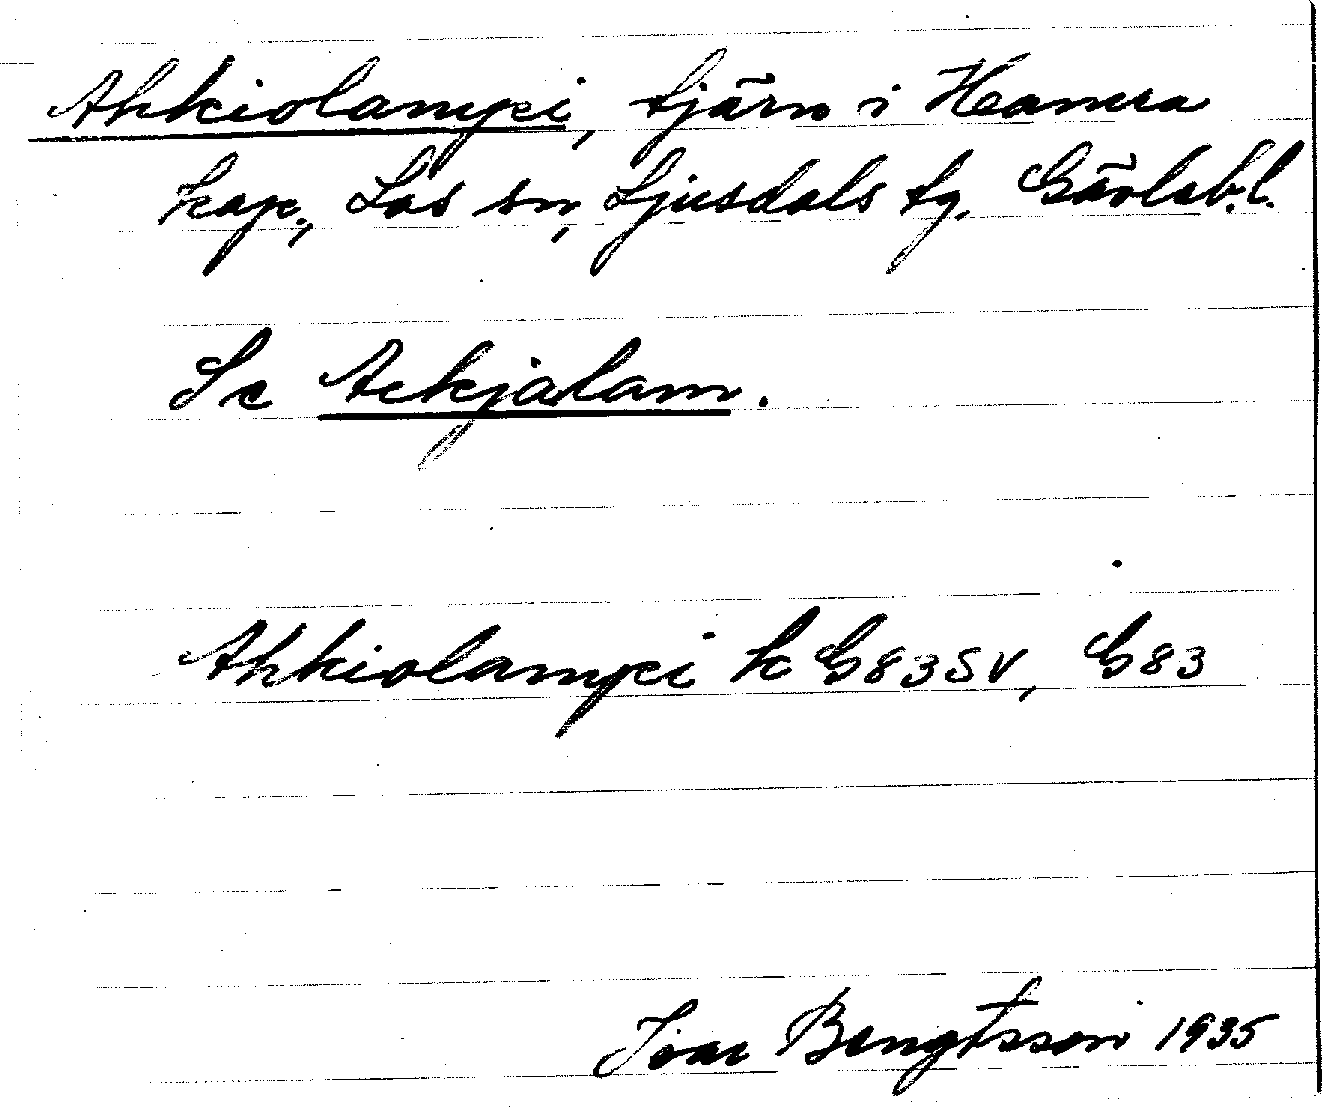 Ahkiolampi, tjärn i Hamra
kap., Los sn, Ljusdals tg. Gävleb.l.
Se Ackjalam.
Ahkiolampi k G83SV, G83
Ivar Bengtsson 1935